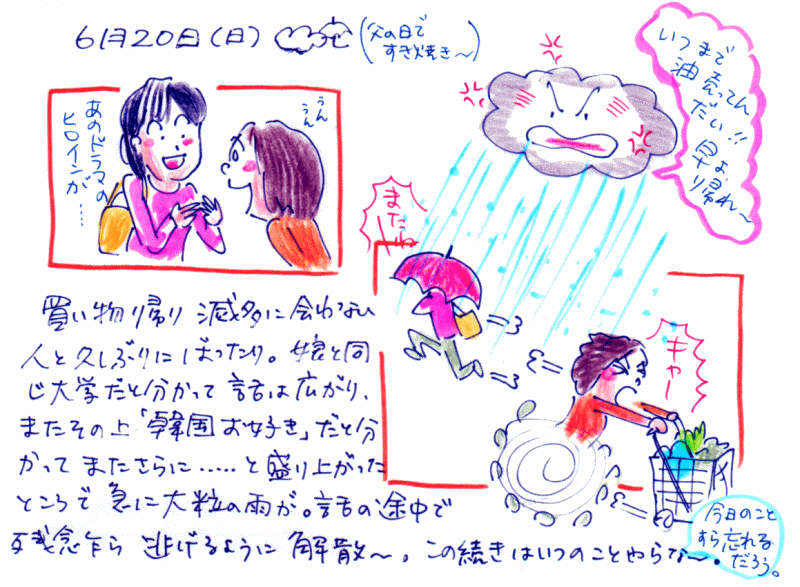 6月20日(日)
(父の日で
すき焼き～)
いつまで
油売ってん
だい!!
早よ
帰れ～
あのドラマの
ヒロインが…
うん
うん
またね
キャー
買い物帰り 滅多に会わない
人と久しぶりにばったり。娘と同
じ大学だと分かって 話は広がり、
またその上「韓国お好き」だと分
かって またさらに……と盛り上がった
ところで 急に大粒の雨が。話の途中で
残念乍ら 逃げるように 解散～。この続きはいつのことやらな～。
今日のこと
すら忘れる
だろう。